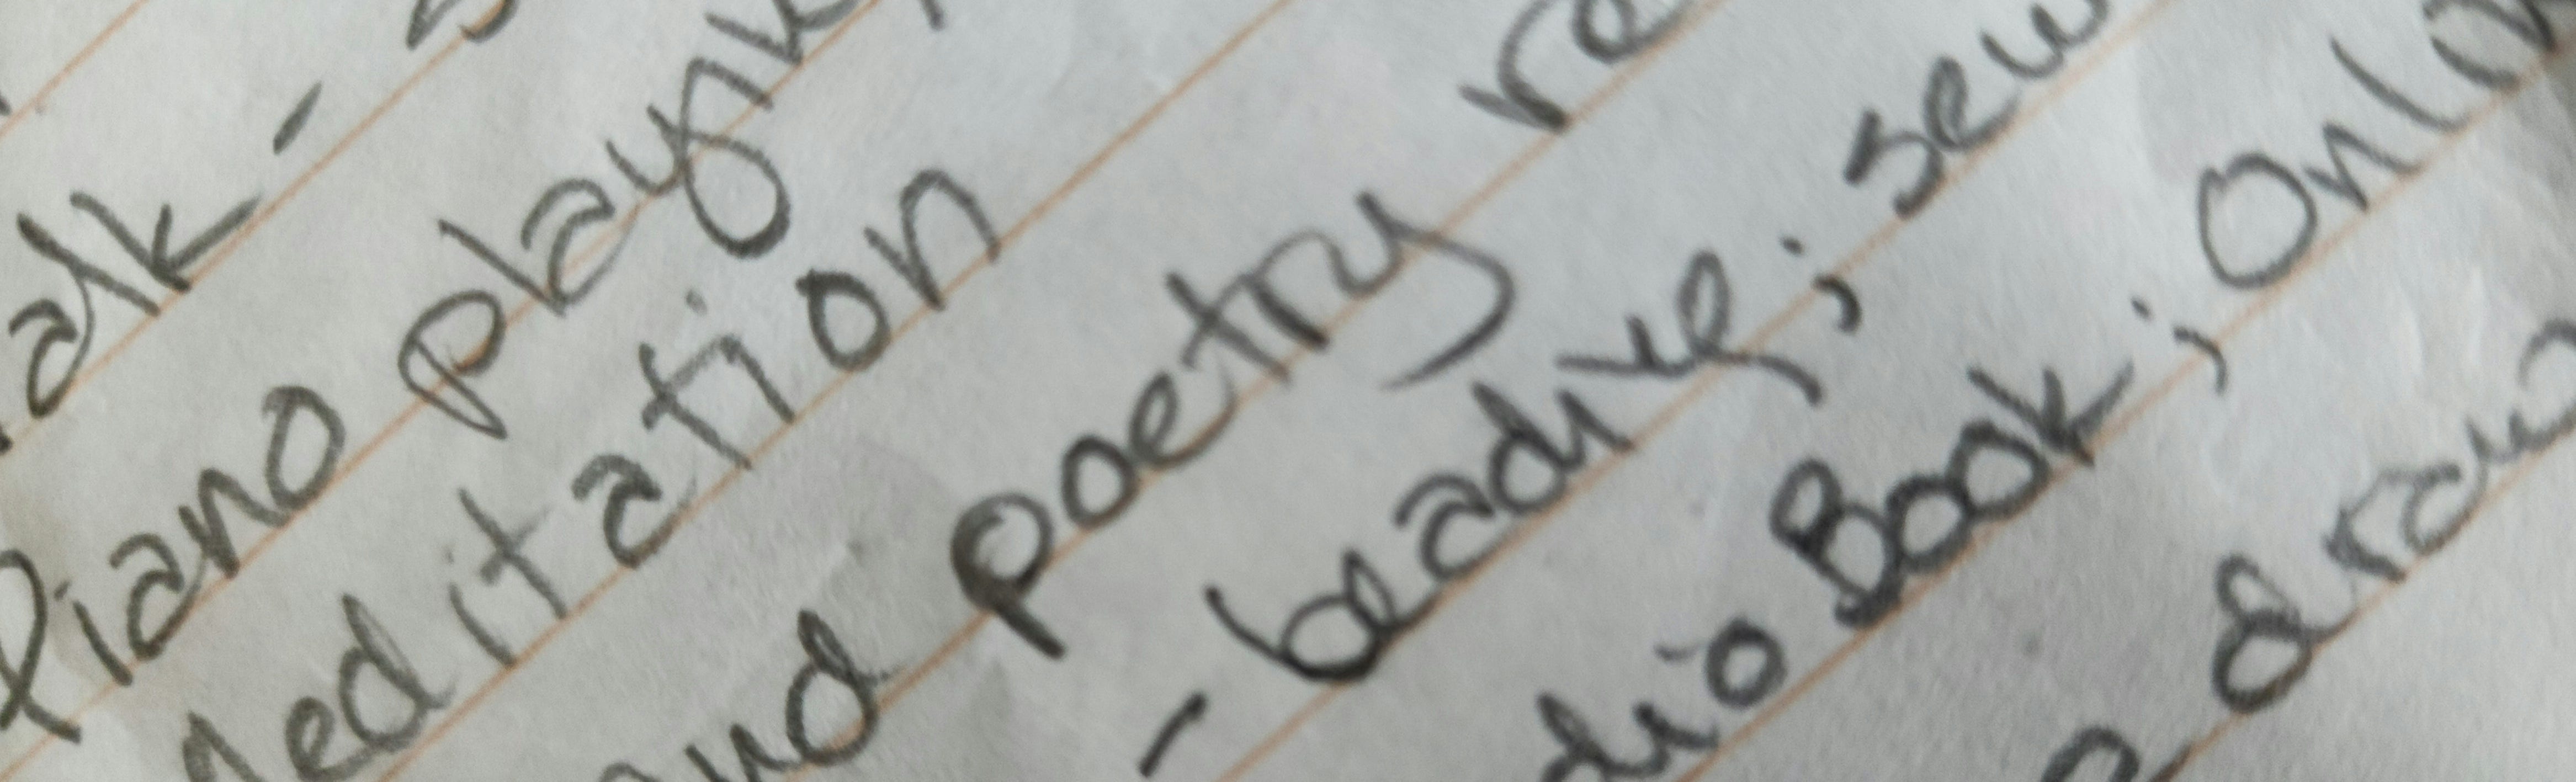 alk -
Piano playn
Meditation
and poetry re
- beadive, ; sew
dio Book ; Onlin
draw